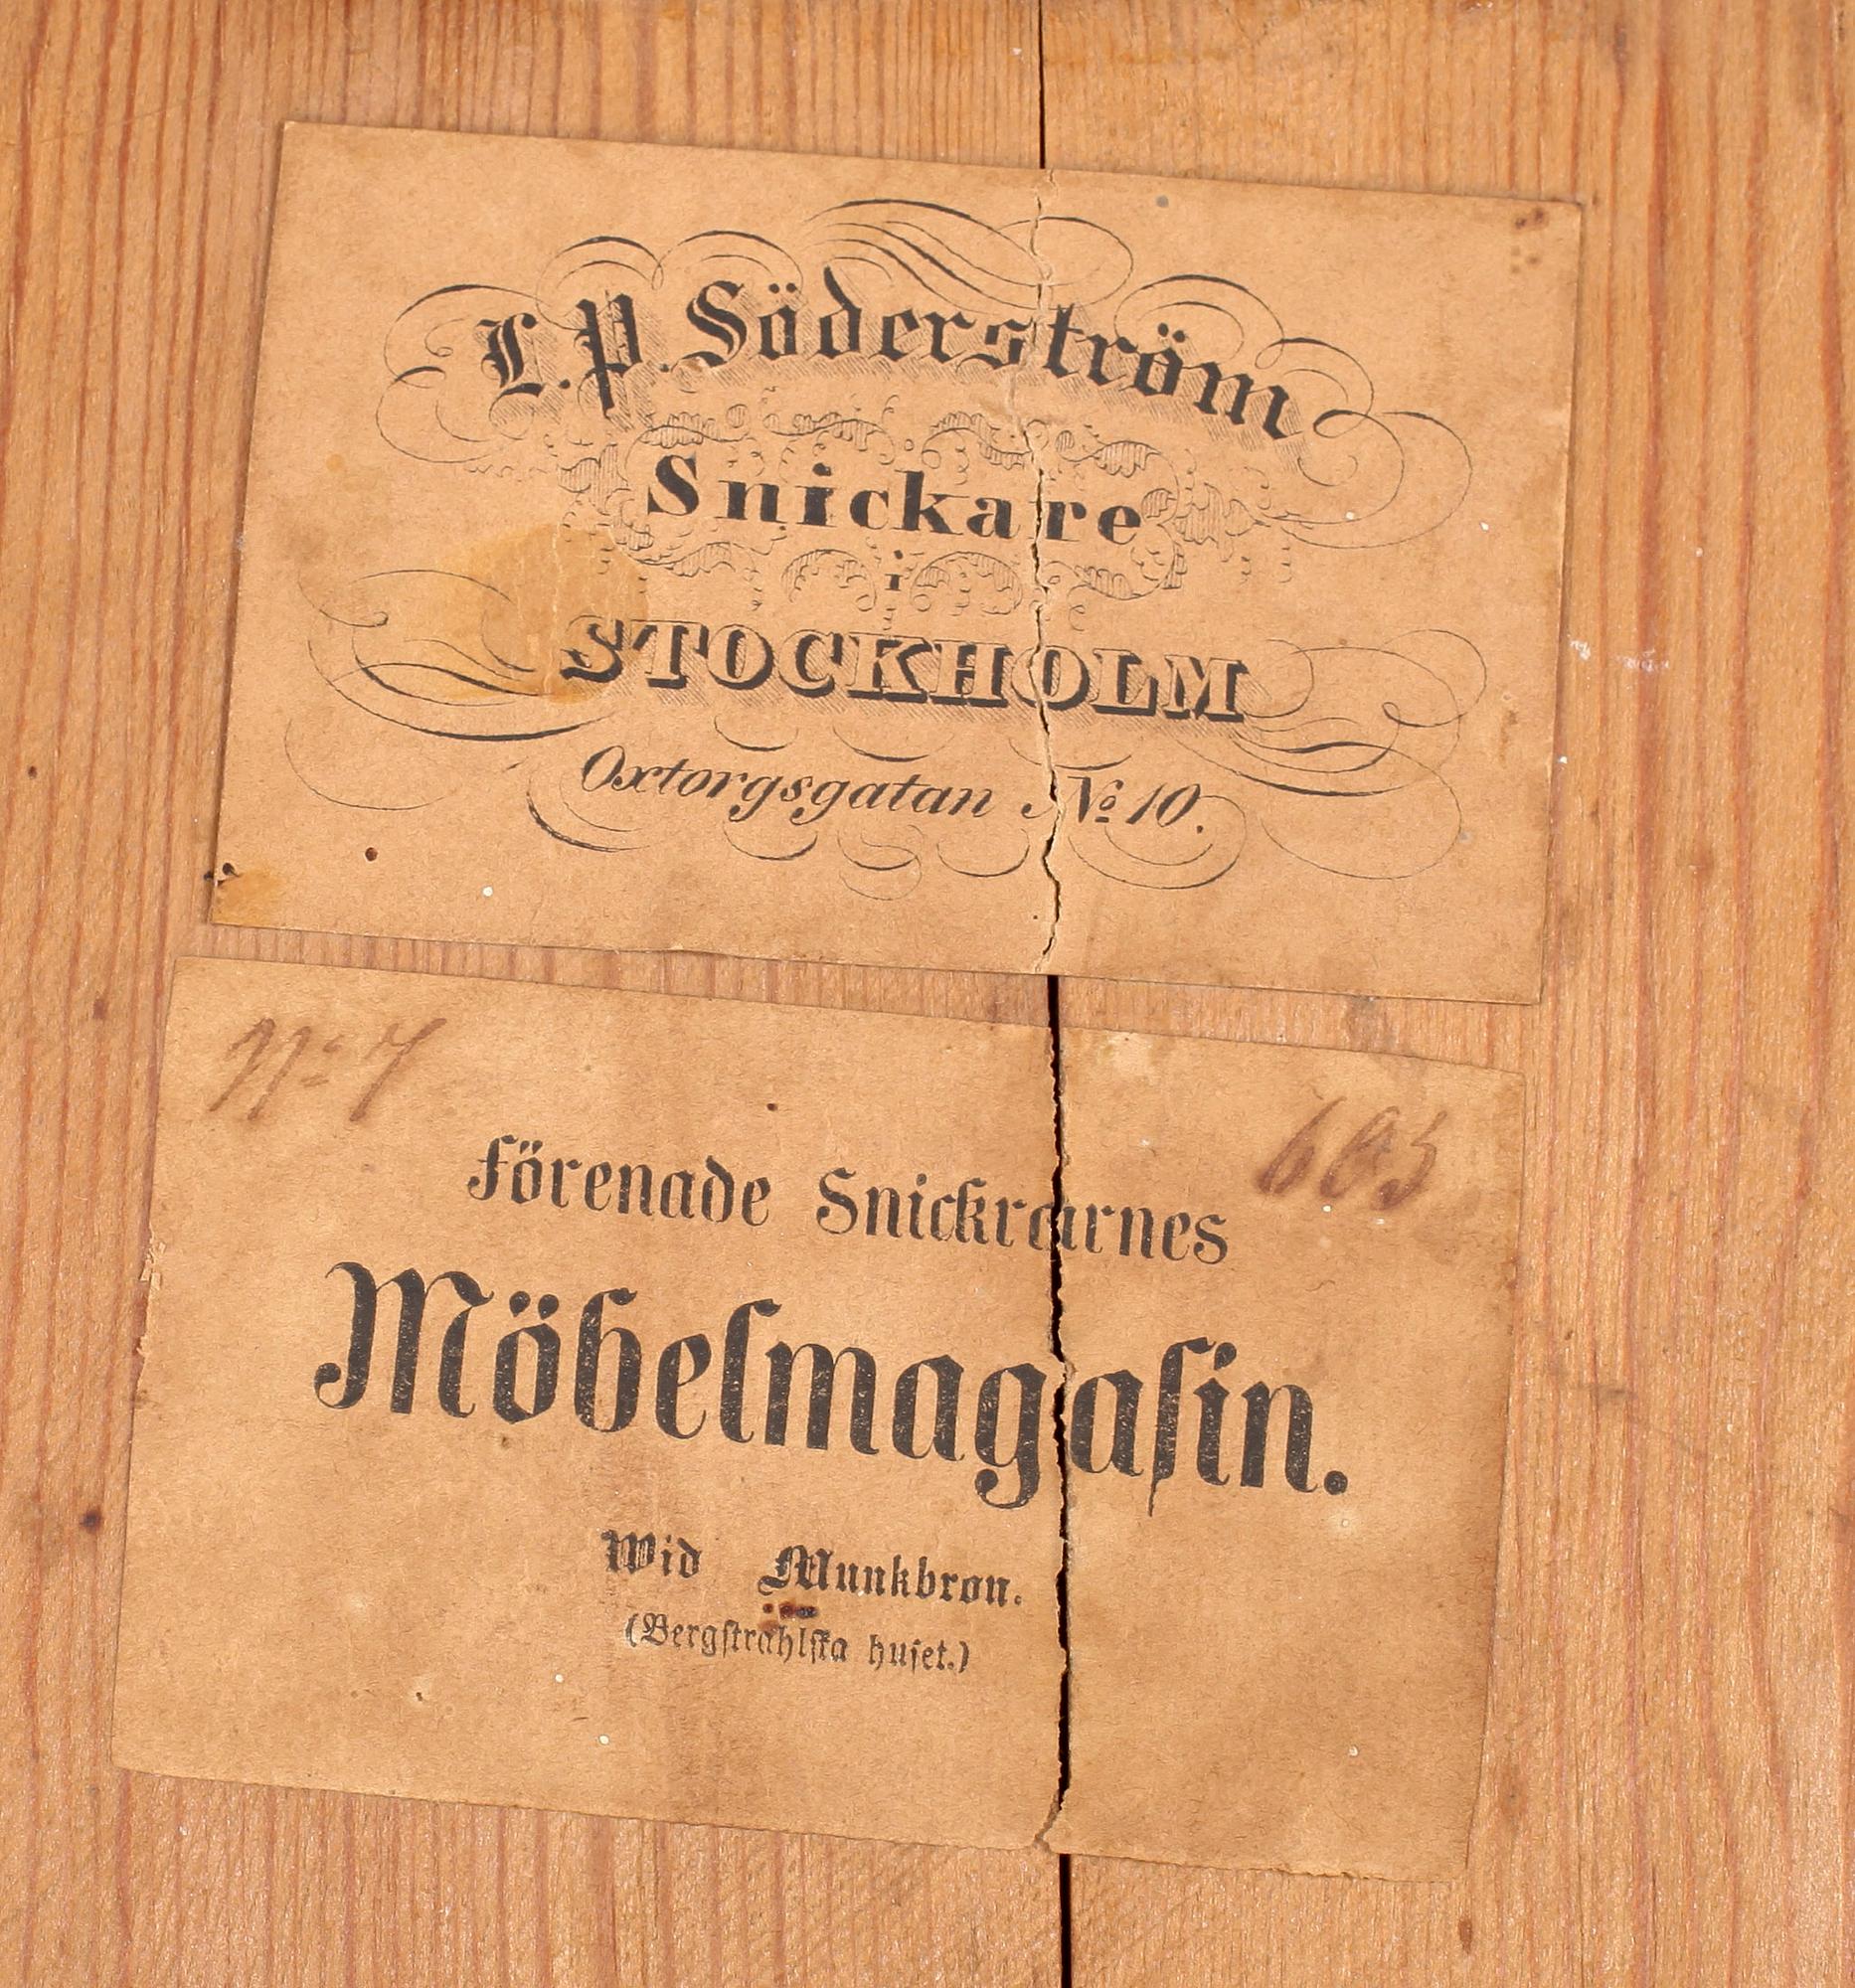 L. P. Söderström
Snickare
i
STOCKHOLM
Oxtorgsgatan No 10.
No 7
603
Förenade Snickrarnes
Möbelmagasin.
Wid Munkbron.
(Bergstrahlska huset.)